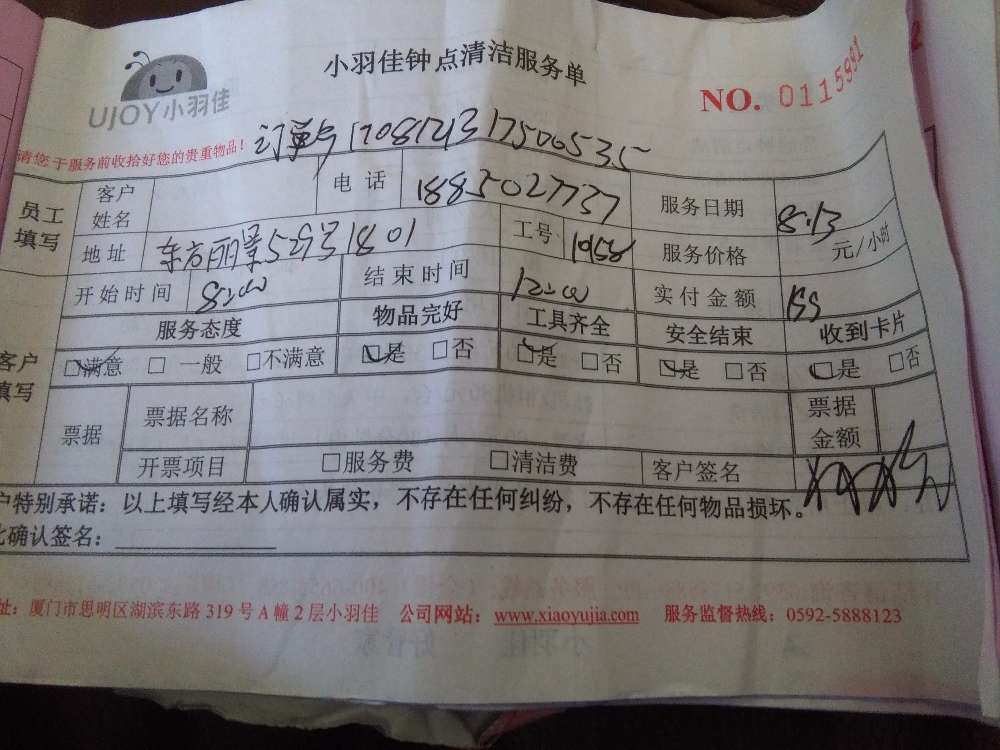 小羽佳钟点清洁服务单
UJOY小羽佳
NO. 0115991
请您于服务前收拾好您的贵重物品！
订单号
员工填写 客户姓名 电话 服务日期 8.13
地址 东方丽景529号1801 工号 1958 服务价格 元/小时
开始时间 8:00 结束时间 12:00 实付金额
服务态度 物品完好 工具齐全 安全结束 收到卡片
客户填写 □满意 □一般 □不满意 □是 □否 □是 □否 □是 □否 □是 □否
票据 票据名称 票据金额
开票项目 □服务费 □清洁费 客户签名
户特别承诺：以上填写经本人确认属实，不存在任何纠纷，不存在任何物品损坏。
此确认签名：
址：厦门市思明区湖滨东路319号A幢2层小羽佳 公司网站：www.xiaoyujia.com 服务监督热线：0592-5888123